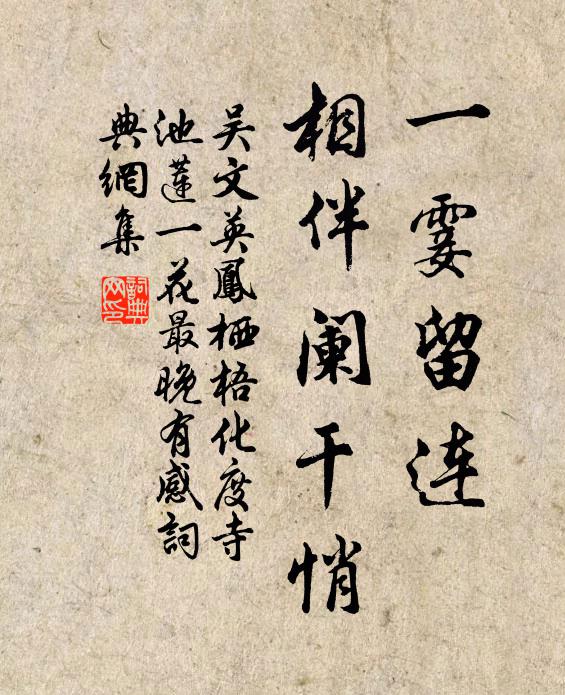 一霎留连
相伴阑干悄
吴文英鳳栖梧化度寺
池蓮一花最晚有感詞
典網集
詞典网印